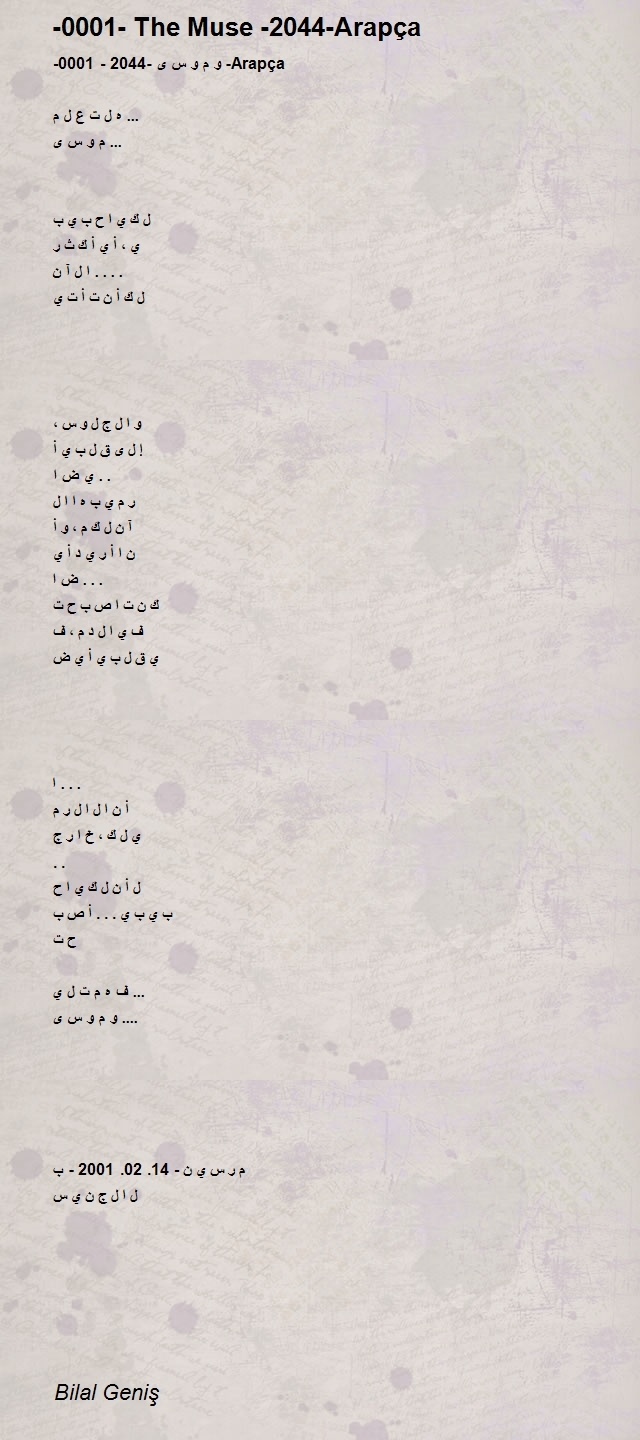 -0001- The Muse -2044-Arapça
-0001 - 2044- و م و س ى -Arapça
ه ل ت ع ل م ...
م و س ى ...
ل ك ي ا ح ب ي ب
ي ، أ ي أ ك ث ر
ا ل آ ن . . . .
ل ك أ ن ت أ ت ي
و ا ل ج ل و س ،
إ ل ى ق ل ب ي أ
ي ض ا . .
ر م ي ب ه ا ا ل
آ ن ل ك م ، و أ
ن ا أ ر ي د أ ي
ض ا . . .
ك ن ت ا ص ب ح ت
ف ي ا ل د م ، ف
ي ق ل ب ي أ ي ض
ا . . .
أ ن ا ل ا ل ر م
ي ل ك ، خ ا ر ج
. .
ل أ ن ل ك ي ا ح
ب ي ب ي . . . أ ص ب
ح ت
ف ه م ت ل ي ...
و م و س ى ....
م ر س ي ن - 14. 02. 2001 - ب
ل ا ل ج ن ي س
Bilal Geniş